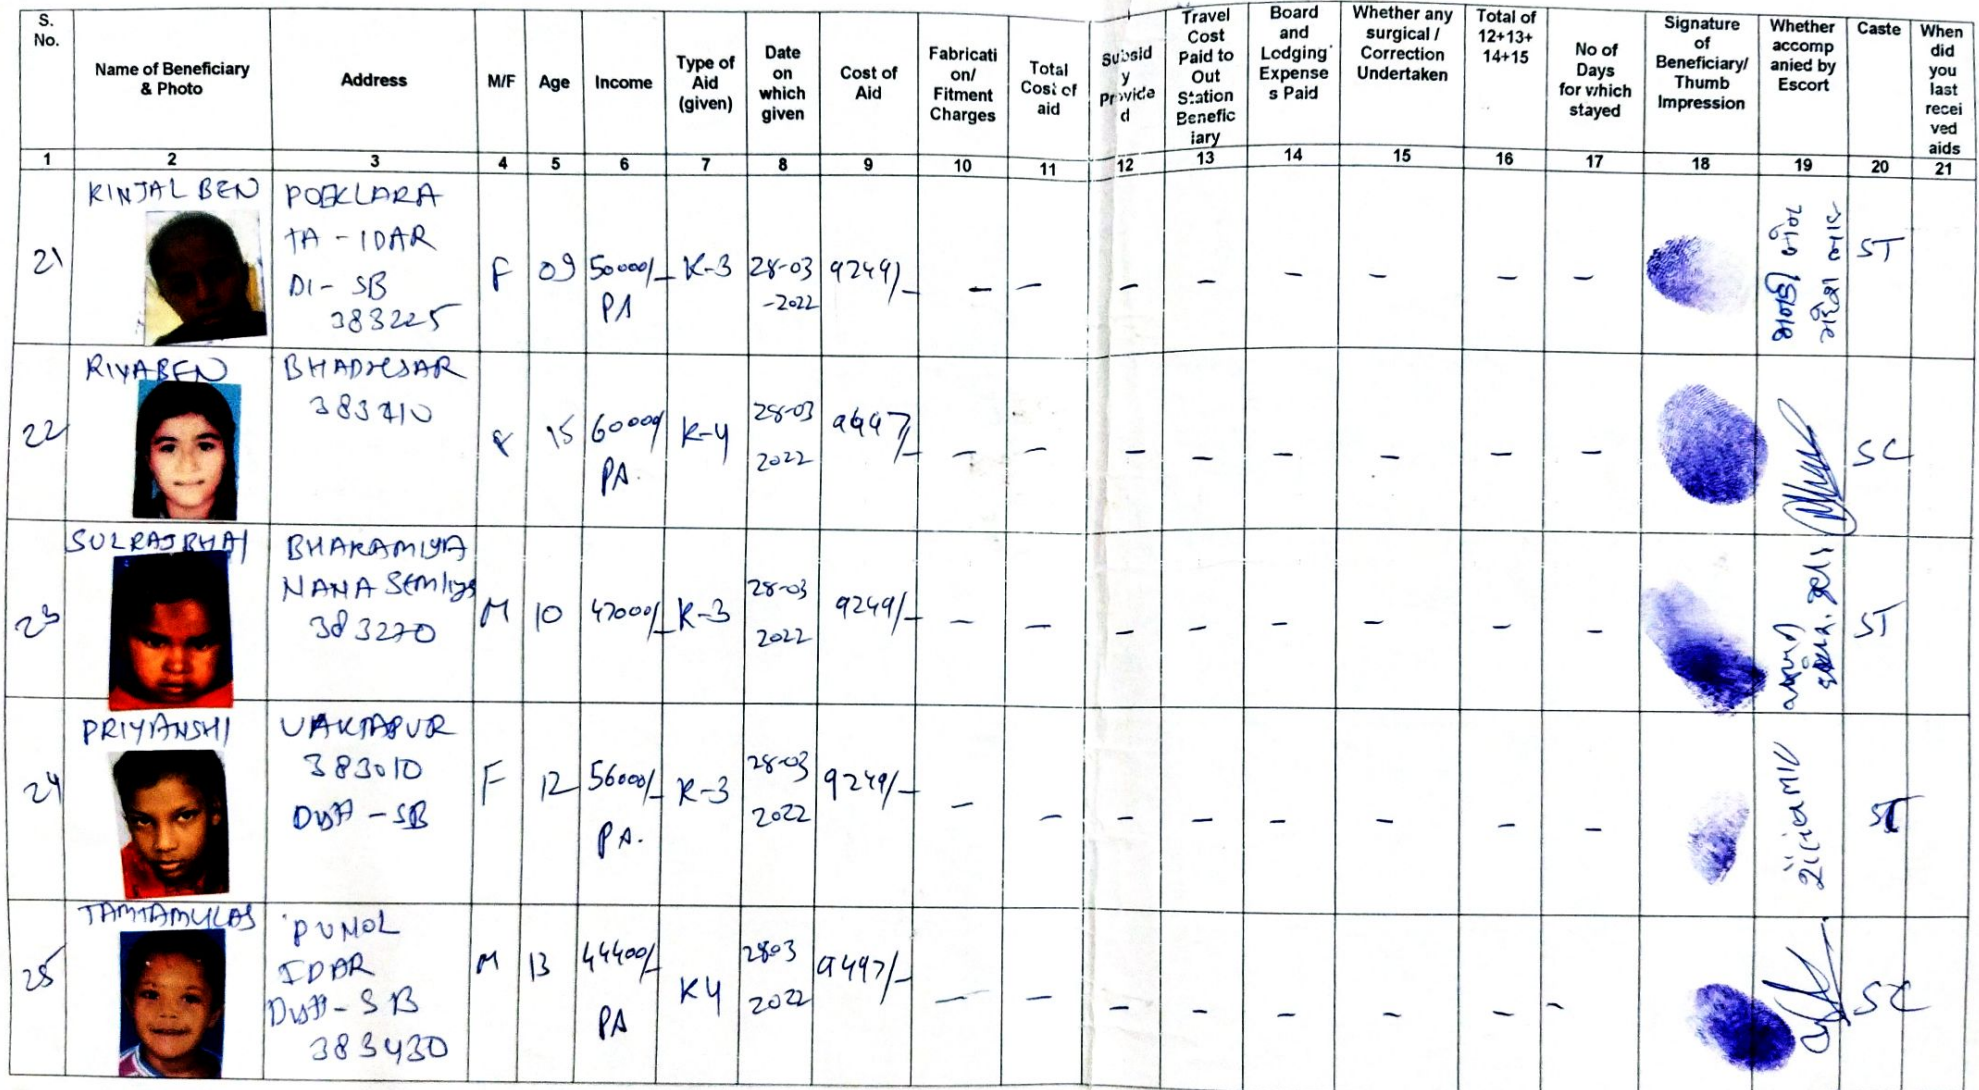 S. No.
Name of Beneficiary & Photo
Address
M/F
Age
Income
Type of Aid (given)
Date on which given
Cost of Aid
Fabricati on/ Fitment Charges
Total Cost of aid
Subsid y Provide d
Travel Cost Paid to Out Station Benefic iary
Board and Lodging Expense s Paid
Whether any surgical / Correction Undertaken
Total of 12+13+ 14+15
No of Days for which stayed
Signature of Beneficiary/ Thumb Impression
Whether accomp anied by Escort
Caste
When did you last recei ved aids
1 2 3 4 5 6 7 8 9 10 11 12 13 14 15 16 17 18 19 20 21
KINJAL BEN
21
TA - IDAR
DI - SB
383225
F 09 50000/- PA K-3 28-03 -2022 9249/- - - - - - - - - ST
RIYABEN
22
383410
F 15 60000/ PA. K-4 28-03 2022 9497/- - - - - - - - - SC
SULRAJBHAI
23
BHARAMIYA
NANA Semliya
383270
M 10 47000/- K-3 28-03 2022 9249/- - - - - - - - - ST
PRIYANSHI
24
VAKTAPUR
383010
Dist - SB
F 12 56000/- PA. K-3 28-03 2022 9249/- - - - - - - - - ST
25
PUNOL
IDAR
Dist - SB
383430
M 13 44400/- PA K4 2803 2022 9497/- - - - - - - - - SC